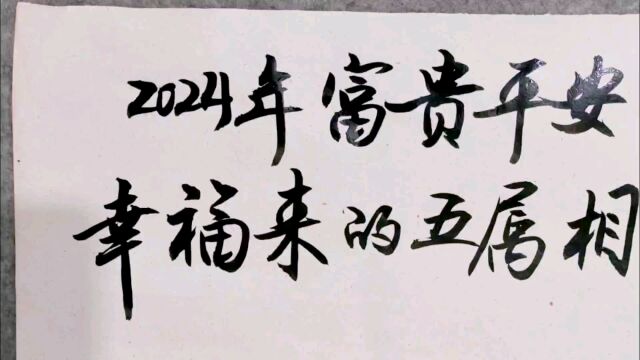 2024年富贵平安
幸福来的五属相